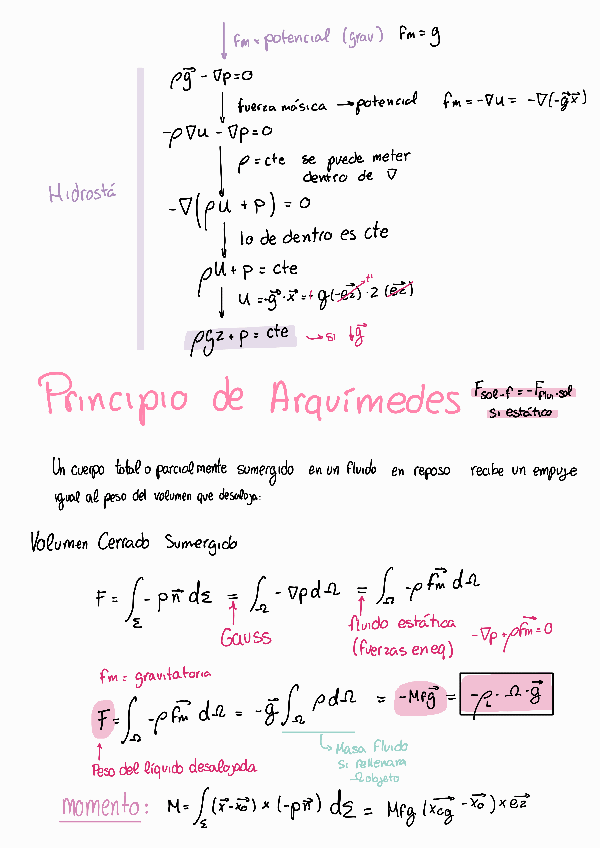 fm = potencial (grav) fm = g
ρg⃗ - ∇p = 0
fuerza másica → potencial fm = -∇u = -∇(-g⃗x⃗)
-ρ∇u - ∇p = 0
ρ = cte se puede meter
dentro de ∇
Hidrostá
-∇(ρu + p) = 0
lo de dentro es cte
ρu + p = cte
u = -g⃗·x⃗ = + g·(-e⃗z)·z (e⃗z)
ρgz + p = cte → si ↓g⃗
Principio de Arquímedes
Fsol-f = -Fflu-sol
si estático
Un cuerpo total o parcialmente sumergido en un fluido en reposo recibe un empuje
igual al peso del volumen que desaloja:
Volumen Cerrado Sumergido
F = ∫Σ -p n⃗ dΣ = ∫Ω -∇p dΩ = ∫Ω -ρ f⃗m dΩ
Gauss
fluido estática
(fuerzas en eq)
-∇p + ρf⃗m = 0
fm = gravitatoria
F = ∫Ω -ρ f⃗m dΩ = -g⃗ ∫Ω ρ dΩ = -Mfg⃗ = -ρL · Ω · g⃗
Peso del líquido desalojada
Masa fluido
si rellenara
Ω objeto
momento: M = ∫Σ (x⃗ - x⃗o) × (-p n⃗) dΣ = Mfg (x⃗cg - x⃗o) × e⃗z